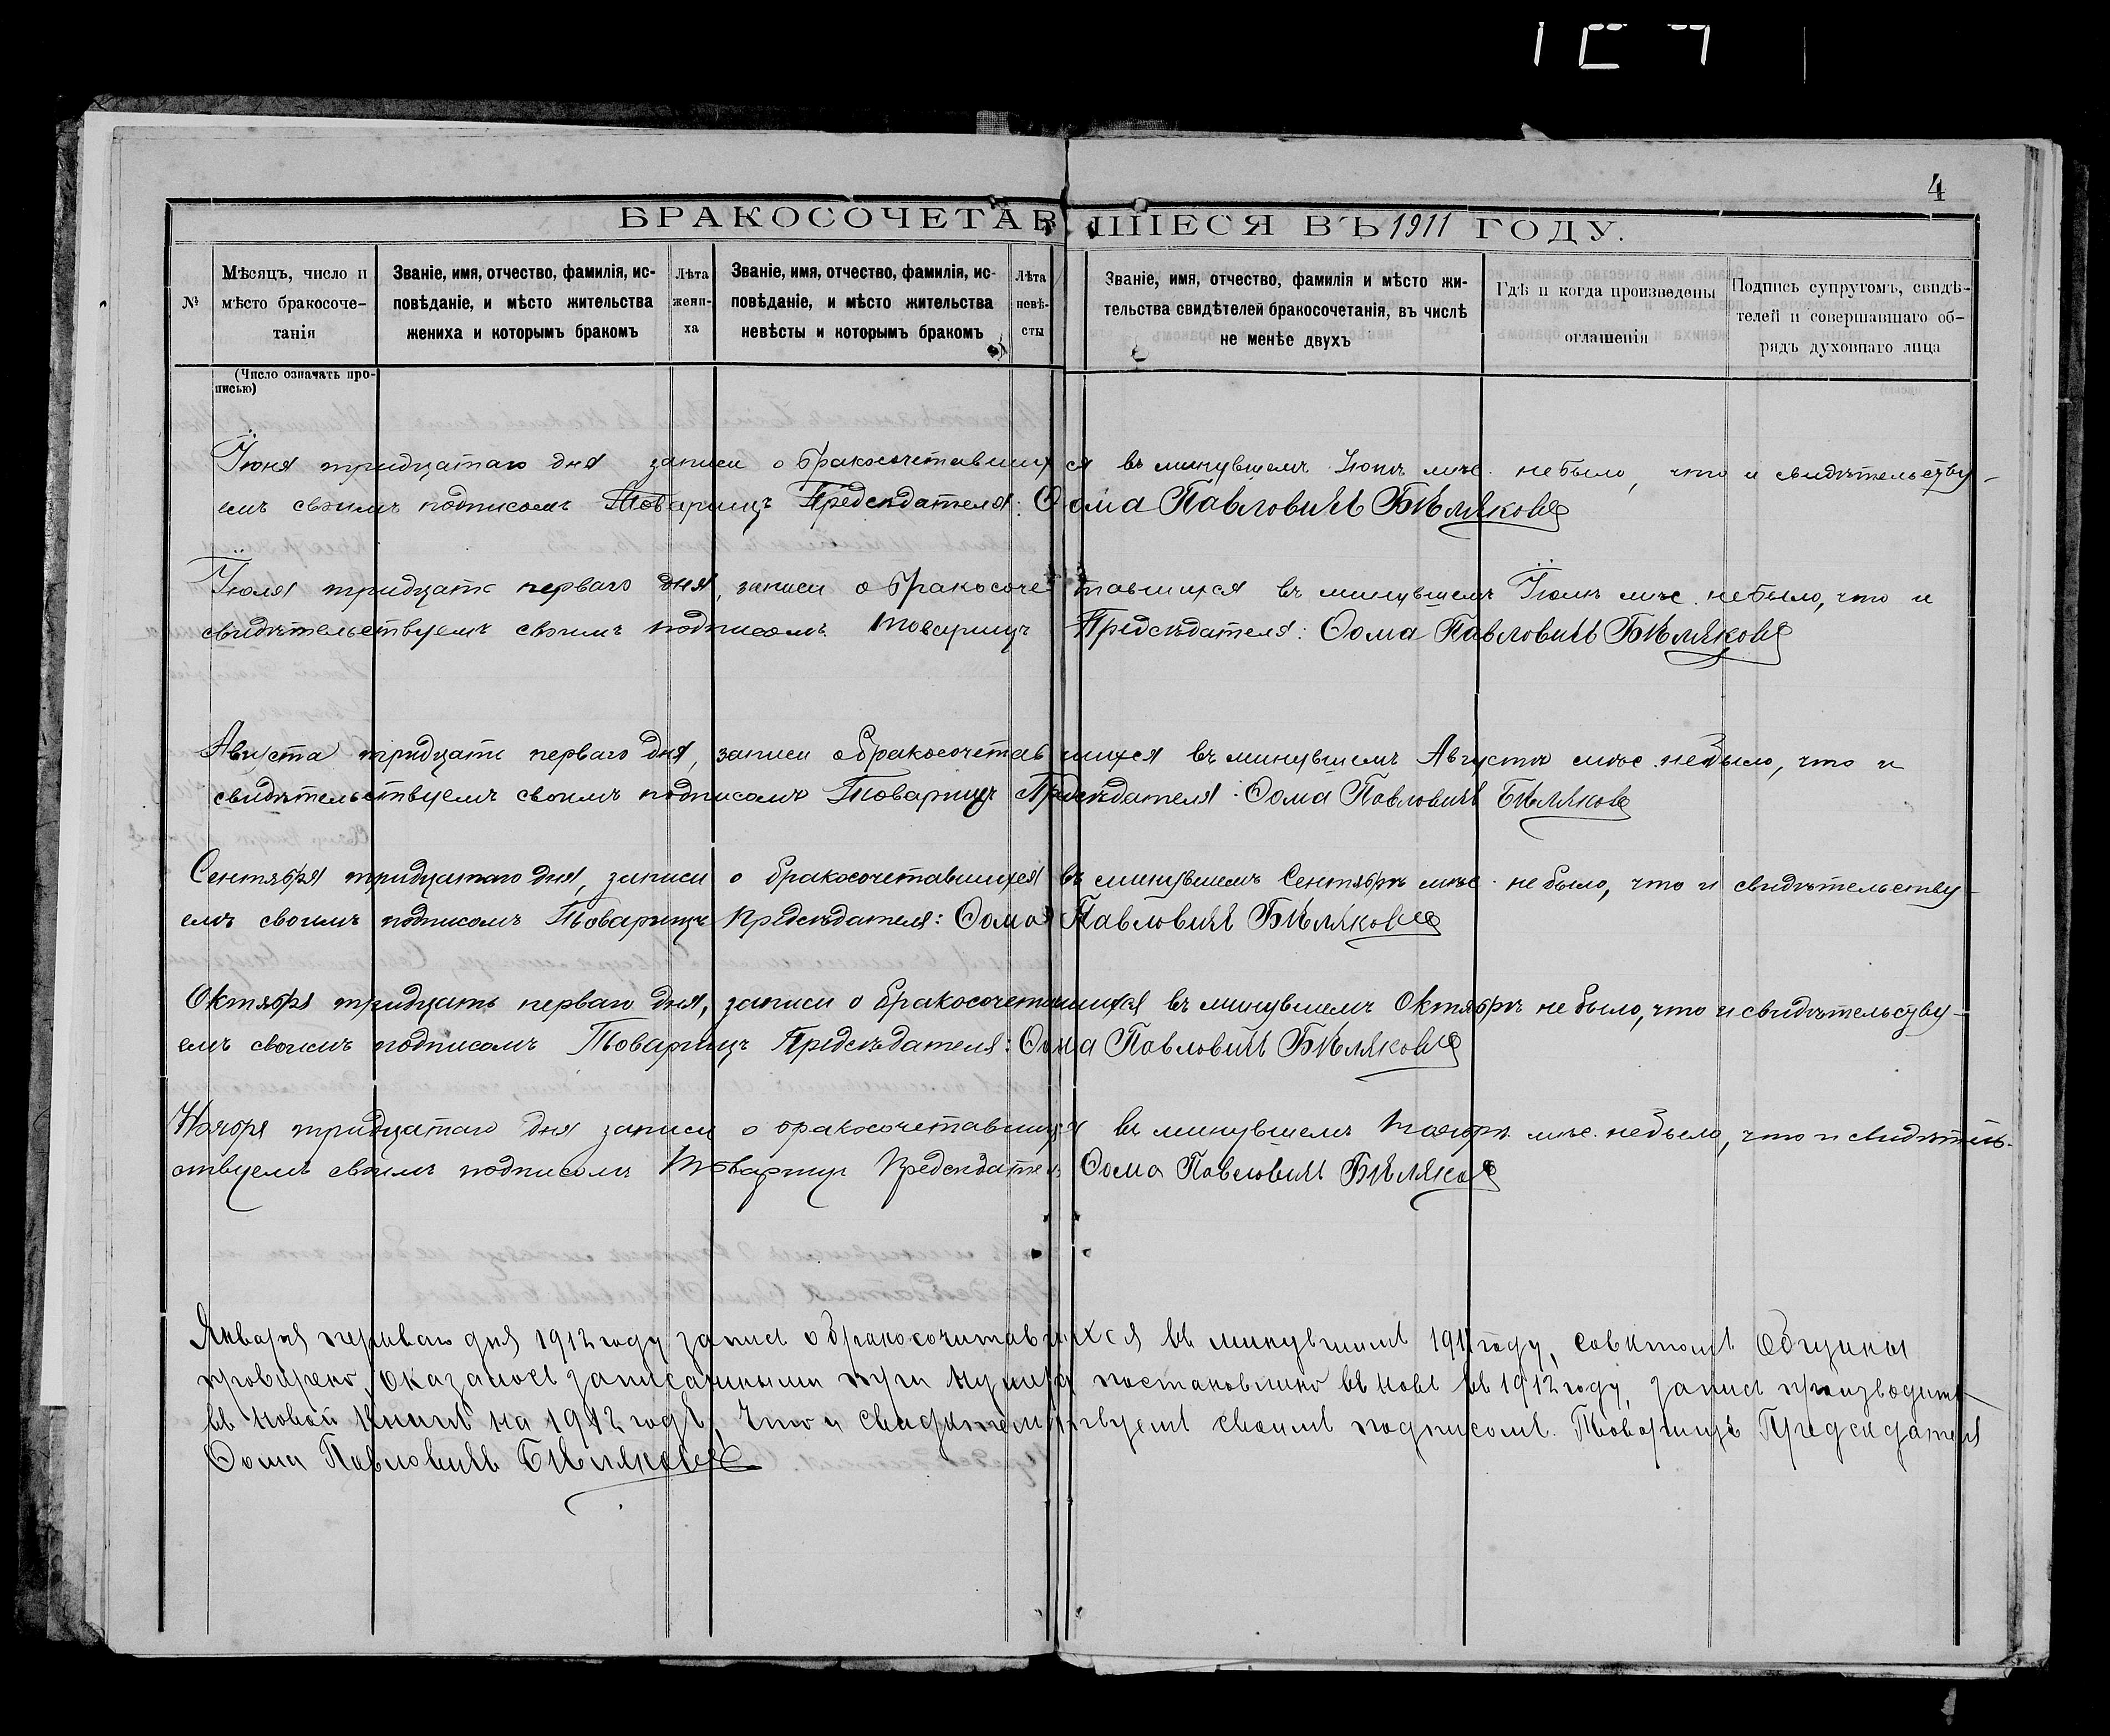 4
БРАКОСОЧЕТАВШІЕСЯ ВЪ 1911 ГОДУ.
№
Мѣсяцъ, число и
мѣсто бракосоче-
танія
Званіе, имя, отчество, фамилія, ис-
повѣданіе, и мѣсто жительства
жениха и которымъ бракомъ
Лѣта
жени-
ха
Званіе, имя, отчество, фамилія, ис-
повѣданіе, и мѣсто жительства
невѣсты и которымъ бракомъ
Лѣта
невѣ-
сты
Званіе, имя, отчество, фамилія и мѣсто жи-
тельства свидѣтелей бракосочетанія, въ числѣ
не менѣе двухъ
Гдѣ и когда произведены
оглашенія
Подпись супруговъ, свидѣ-
телей и совершавшаго об-
рядъ духовнаго лица
(Число означать про-
писью)
Їюня тридцатаго дня записи о бракосочетавшихся въ минувшемъ Іюнѣ мѣс. небыло, что и свидѣтельству-
емъ своимъ подписомъ Товарищъ Предсѣдателя: Ѳома Павловичъ Бѣляковъ
Їюля тридцать перваго дня, записи о бракосочетавшихся въ минувшемъ Їюлѣ мѣс. небыло, что и
свидѣтельствуемъ своимъ подписомъ Товарищъ Предсѣдателя: Ѳома Павловичъ Бѣляковъ
Августа тридцать перваго дня, записи о бракосочетавшихся въ минувшемъ Августѣ мѣс. небыло, что и
свидѣтельствуемъ своимъ подписомъ Товарищъ Предсѣдателя: Ѳома Павловичъ Бѣляковъ
Сентября тридцатаго дня, записи о бракосочетавшихся въ минувшемъ Сентябрѣ мѣс. не было, что и свидѣтельству-
емъ своимъ подписомъ Товарищъ Предсѣдателя: Ѳома Павловичъ Бѣляковъ
Октября тридцать перваго дня, записи о бракосочетавшихся въ минувшемъ Октябрѣ не было, что и свидѣтельству-
емъ своимъ подписомъ Товарищъ Предсѣдателя: Ѳома Павловичъ Бѣляковъ
Ноября тридцатаго дня записи о бракосочетавшихся въ минувшемъ Ноябрѣ мѣс. небыло, что и свидѣтель-
ствуемъ своимъ подписомъ Товарищъ Предсѣдателя Ѳома Павловичъ Бѣляковъ
Января перваго дня 1912 году записи о бракосочитавшихся въ минувшимъ 1911 году, совѣтомъ Общины
проверено, оказалось записанными постановлино въ новь въ 1912 году, записи производить
въ новой книгѣ на 1912 годъ, что и свидѣтельствуемъ своимъ подписомъ. Товарищъ Предсидателя
Ѳома Павловичъ Бѣляковъ